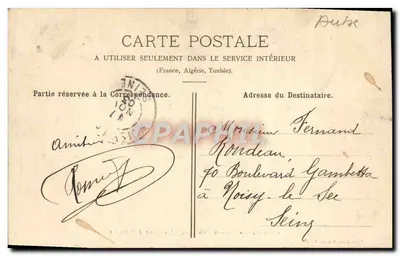 Aube
CARTE POSTALE
A UTILISER SEULEMENT DANS LE SERVICE INTÉRIEUR
(France, Algérie, Tunisie).
Partie réservée à la Correspondance.
Adresse du Destinataire.
SEINE
Monsieur Fernand
Rondeau,
70 Boulevard Gambetta
à Noisy-le Sec
Seine
CPAPHIL